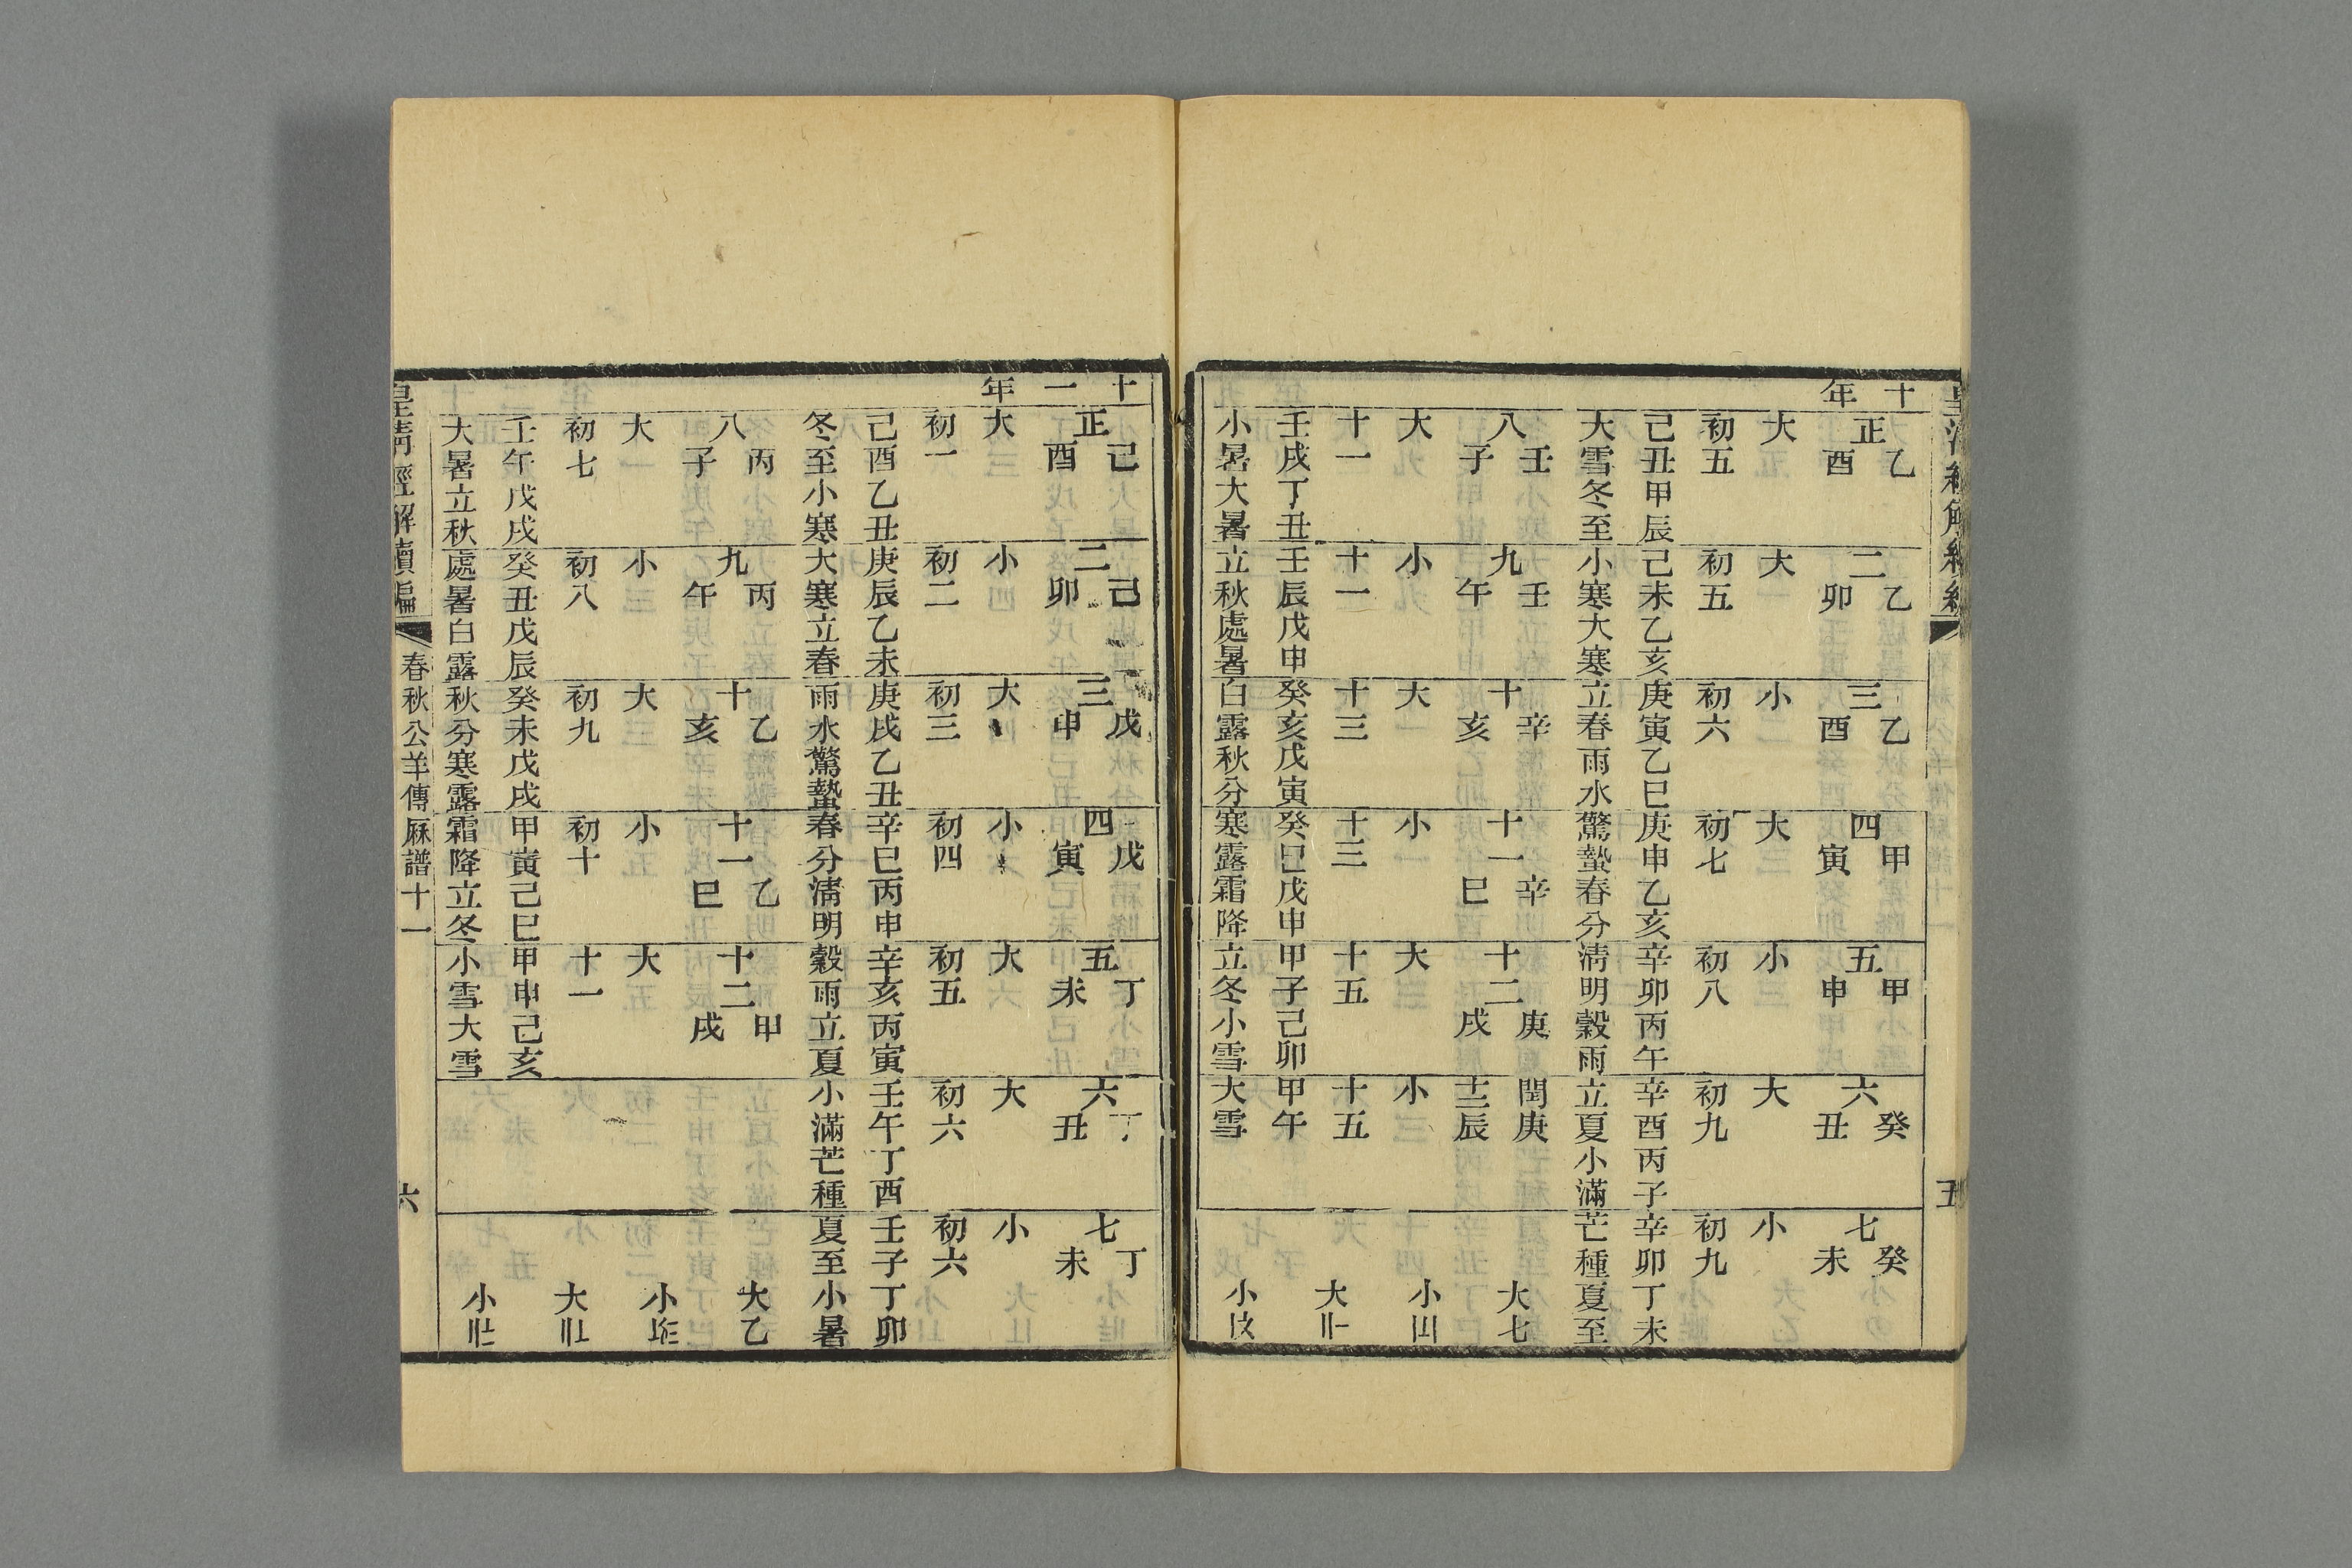 十年
正乙酉
大
初五
己丑甲辰
大雪冬至
二乙卯
大
初五
己未乙亥
小寒大寒
三乙酉
小
初六
庚寅乙巳
立春雨水
四甲寅
大
初七
庚申乙亥
驚蟄春分
五甲申
小
初八
辛卯丙午
淸明穀雨
六癸丑
大
初九
辛酉丙子
立夏小滿
七癸未
小
初九
辛卯丁未
芒種夏至
八壬子
大
十一
壬戌丁丑
小暑大暑
九壬午
小
十一
壬辰戊申
立秋處暑
十辛亥
大
十三
癸亥戊寅
白露秋分
十一辛巳
小
十三
癸巳戊申
寒露霜降
十二庚戌
大
十五
甲子己卯
立冬小雪
閏十二庚辰
小
十五
甲午
大雪
大七
小
大
小
五
十一年
正己酉
大
初一
己酉乙丑
冬至小寒
二己卯
小
初二
庚辰乙未
大寒立春
三戊申
大
初三
庚戌乙丑
雨水驚蟄
四戊寅
小
初四
辛巳丙申
春分淸明
五丁未
大
初五
辛亥丙寅
穀雨立夏
六丁丑
大
初六
壬午丁酉
小滿芒種
七丁未
小
初六
壬子丁卯
夏至小暑
八丙子
大
初七
壬午戊戌
大暑立秋
九丙午
小
初八
癸丑戊辰
處暑白露
十乙亥
大
初九
癸未戊戌
秋分寒露
十一乙巳
小
初十
甲寅己巳
霜降立冬
十二甲戌
大
十一
甲申己亥
小雪大雪
大乙
小
大
小
皇淸經解續編
春秋公羊傳厤譜十一
六